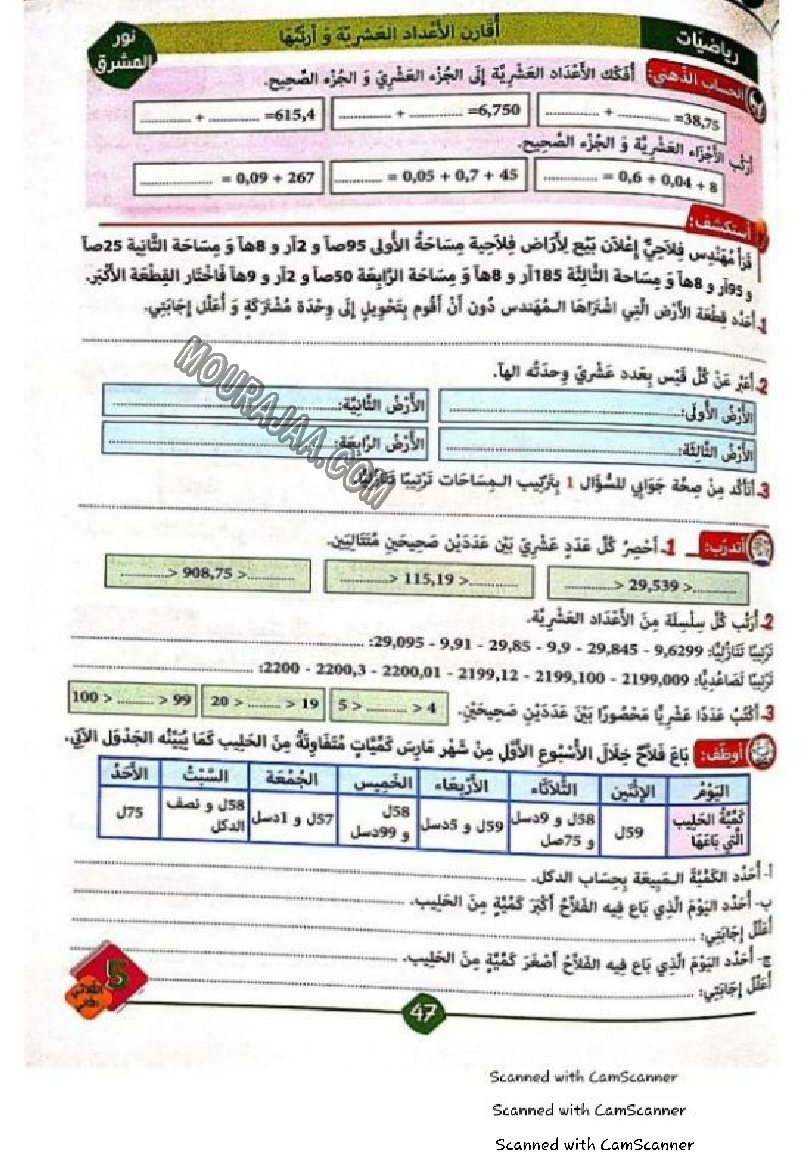 نور المشرق
أُقَارِن الأَعْدَاد العَشْرِيَّة وَ أُرَتِّبُهَا
رياضيّات
الحساب الذّهني: أُفَكِّك الأَعْدَاد العَشْرِيَّة إِلَى الجُزْء العَشْرِيّ وَ الجُزْء الصَّحِيح.
38,75= .............. + ..............
6,750= .............. + ..............
615,4= .............. + ..............
أُرَكِّب الأَجْزَاء العَشْرِيَّة وَ الجُزْء الصَّحِيح.
.............. = 0,6 + 0,04 + 8
.............. = 0,05 + 0,7 + 45
.............. = 0,09 + 267
أستكشف:
قَرَأَ مُهَنْدِس فِلَاحِيٌّ إِعْلَان بَيْع لِأَرَاض فِلَاحِية مِسَاحَةُ الأُولى 95صآ و 2آر و 8هآ وَ مِسَاحَة الثَّانِية 25صآ
و 95آر و 8هآ وَ مِسَاحة الثَّالِثَة 185آر و 8هآ وَ مِسَاحَة الرَّابِعَة 50صآ و 2آر و 9هآ فَاخْتَار القِطْعَة الأَكْبَر.
1. أُحَدِّد قِطْعَة الأَرْض الَّتِي اشْتَرَاهَا الـمُهَندس دُون أَنْ أَقُوم بِتَحْوِيل إِلَى وِحْدَة مُشْتَرَكَةٍ وَ أُعَلِّل إِجَابَتِي.
2. أُعَبِّر عَنْ كُلّ قَيْس بِعَدد عَشْرِيّ وِحدَتُه الهآ.
الأَرْضُ الأُولَى: ..............
الأَرْضُ الثَّانِيَة: ..............
الأَرْضُ الثَّالِثَة: ..............
الأَرْضُ الرَّابِعَة: ..............
3. أَتَأَكَّد مِنْ صِحَّة جَوَابِي للسُّؤَال 1 بِتَرْتِيب الـمِسَاحَات تَرْتِيبًا تَنَازُلِيًّا.
أتدرّب: 1. أَحْصِرُ كُلّ عَدَدٍ عَشْرِيّ بَيْن عَدَدَيْن صَحِيحَيْنِ مُتَتَالِيَيْن.
..............> 29,539 >..............
..............> 115,19 >..............
..............> 908,75 >..............
2. أُرَتِّب كُلّ سِلْسِلَة مِنَ الأَعْدَاد العَشْرِيَّة.
تَرْتِيبًا تَنَازُلِيًّا: 9,6299 - 29,845 - 9,9 - 29,85 - 9,91 - 29,095: ..............
تَرْتِيبًا تَصَاعُدِيًّا: 2199,009 - 2199,100 - 2199,12 - 2200,01 - 2200,3 - 2200: ..............
3. أَكْتُبُ عَدَدًا عَشْرِيًّا مَحْصُورًا بَيْنَ عَدَدَيْنِ صَحِيحَيْنِ.
5 > .......... > 4
20 > .......... > 19
100 > .......... > 99
أوظّف: بَاعَ فَلَّاحٌ خِلَالَ الأُسْبُوعِ الأَوَّلِ مِنْ شَهْرِ مَارِسَ كَمِّيَّاتٍ مُتَفَاوِتَةً مِنَ الحَلِيب كَمَا يُبَيِّنُه الجَدْوَل الآتِي.
اليَوْمُ الإِثْنَيْن الثُّلَاثَاء الأَرْبِعَاء الخَمِيس الجُمُعَة السَّبْتُ الأَحَدُ
كَمِّيَّةُ الحَلِيبِ الَّتِي بَاعَهَا
59ل
58ل و 9دسل و 75صل
59ل و 5دسل
58ل و 99دسل
57ل و 1دسل
58ل و نصف الدكل
75ل
أ- أُحَدِّد الكَمِّيَّةَ الـمَبِيعَة بِحِسَاب الدكل. ..............
ب- أُحَدِّد اليَوْمَ الَّذِي بَاع فِيه الفَلَّاحُ أَكْبَرَ كَمِّيَّةٍ مِنَ الحَلِيب. ..............
أُعَلِّل إِجَابَتِي: ..............
ج- أُحَدِّد اليَوْمَ الَّذِي بَاع فِيه الفَلَّاحُ أَصْغَرَ كَمِّيَّةٍ مِنَ الحَلِيب. ..............
أُعَلِّل إِجَابَتِي: ..............
5
47
MOURAJAA.COM
Scanned with CamScanner
Scanned with CamScanner
Scanned with CamScanner